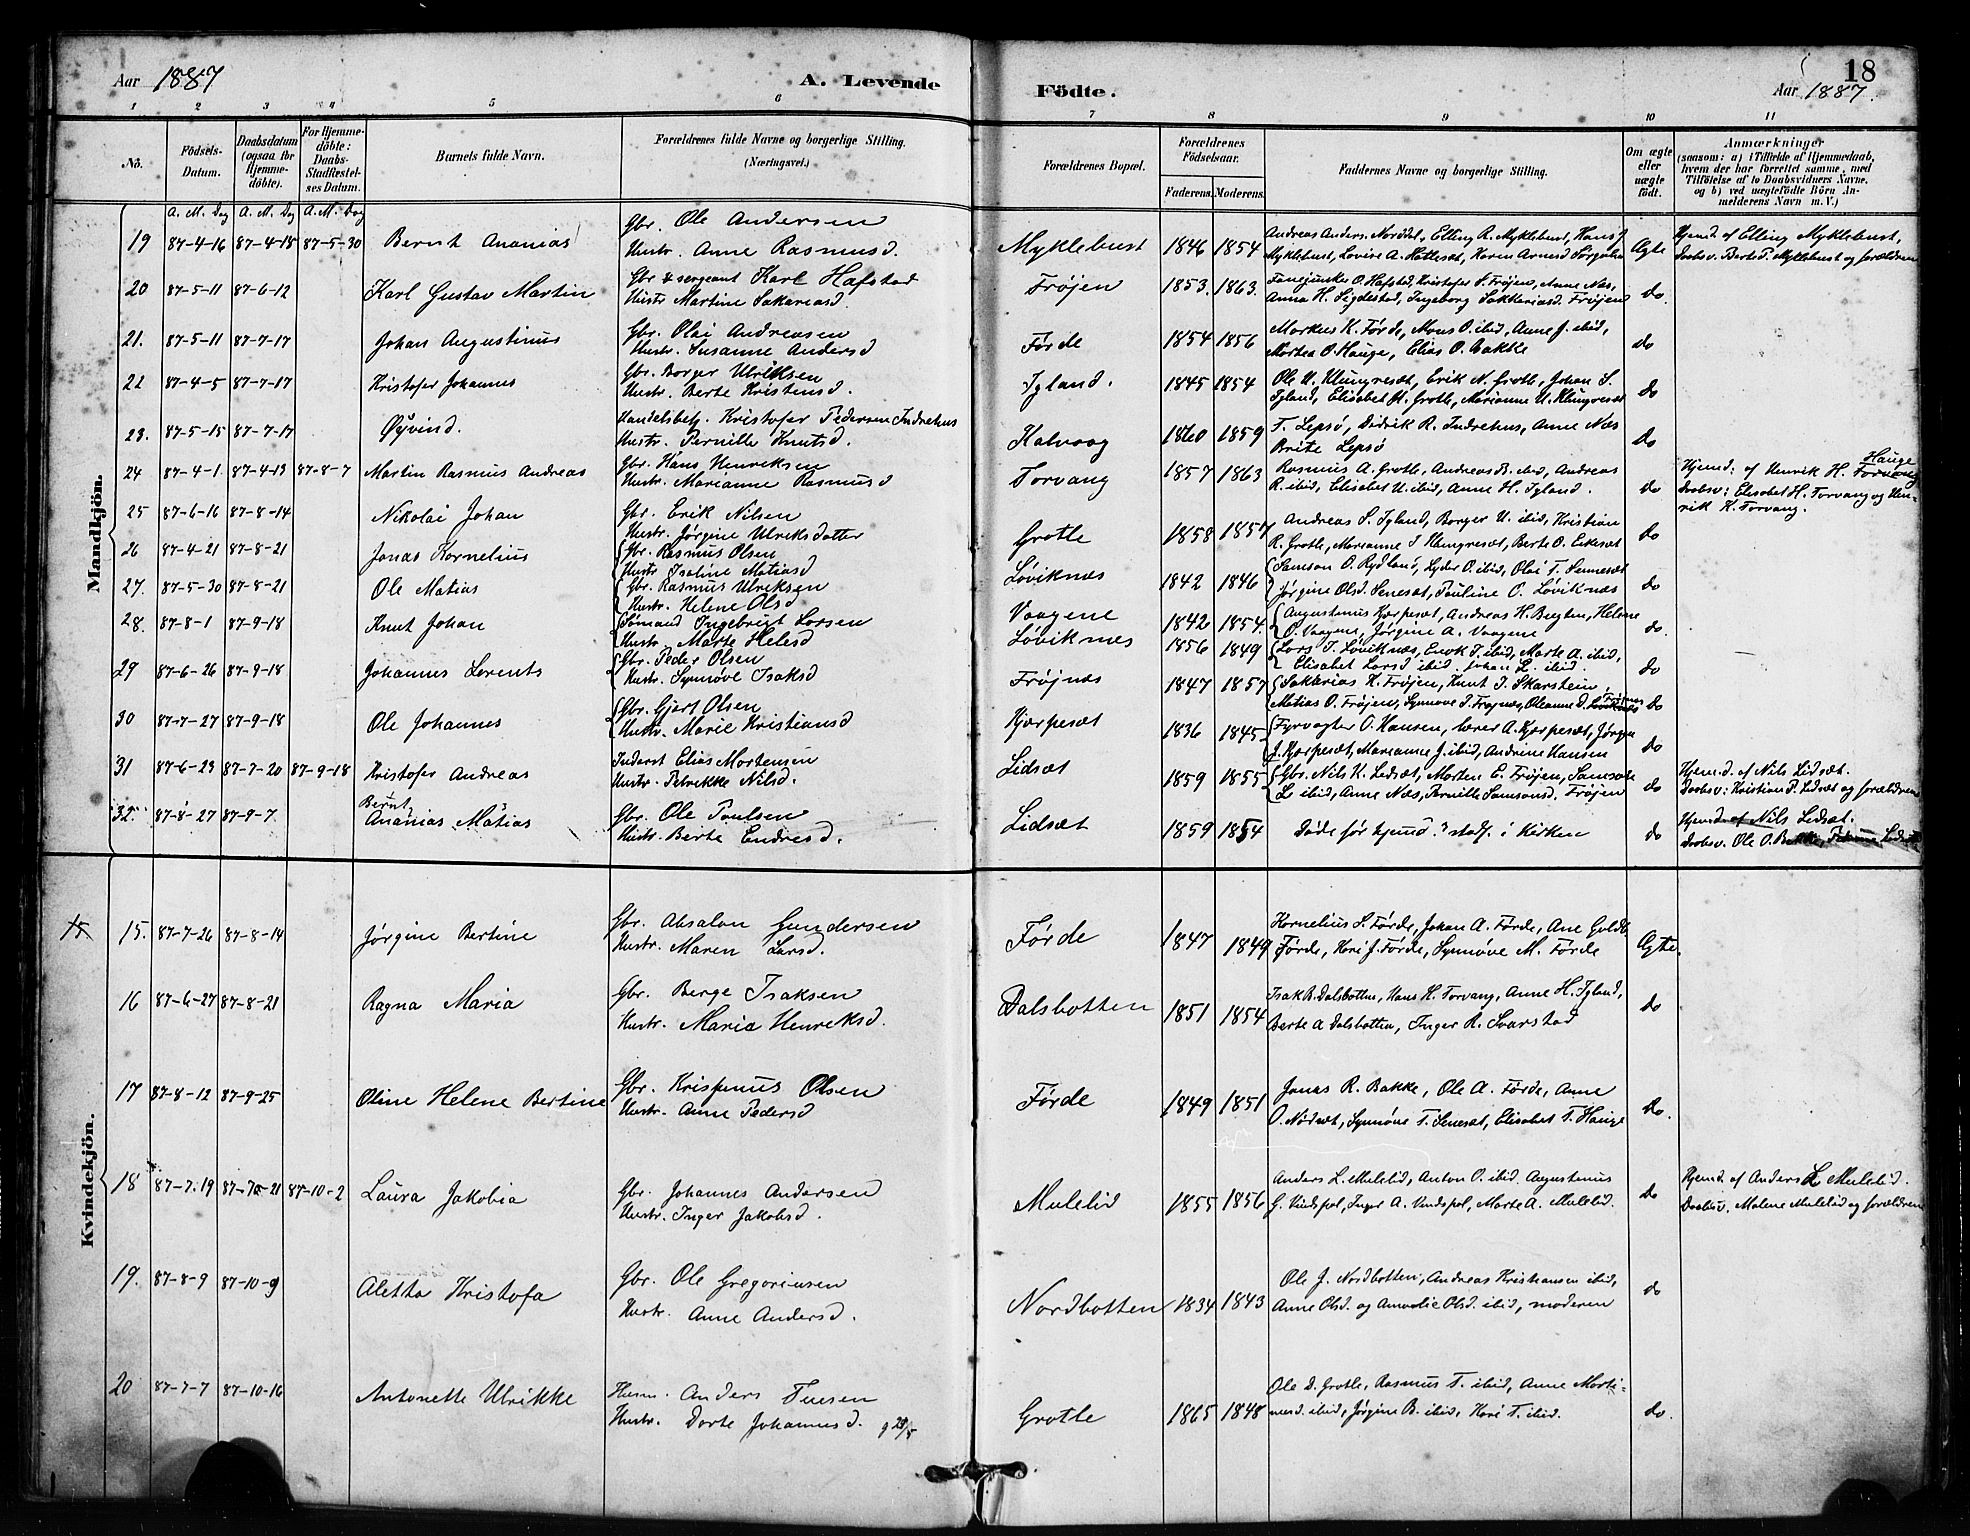 Aar 1887
A. Levende
Födte.
18
Aar 1887.
1 2 3 4 5 6 7 8 9 10 11
Nô.
Födsels-Datum.
Daabsdatum (ogsaa for Hjemme-döbte).
For Hjemme-döbte: Daabs-Stadfæstel-ses Datum.
Barnets fulde Navn.
Forældrenes fulde Navne og borgerlige Stilling. (Næringsvei.)
Forældrenes Bopæl.
Forældrenes Födselsaar.
Faderens. Moderens.
Faddernes Navne og borgerlige Stilling.
Om ægte eller uægte födt.
Anmærkninger (saasom: a) i Tilfælde af Hjemmedaab, hvem der har forrettet samme, med Tilföielse af to Daabsvidners Navne, og b) ved uægtefödte Börn An-melderens Navn m. V.)
A. M. Dag A. M. Dag A. M. Dag
Mandkjön.
19 87-4-16 87-4-18 87-5-30 Bernt Ananias Gbr. Ole Andersen
Hustr. Anne Rasmusd. Myklebust 1846 1854 Andreas Anders. Norddal, Elling R. Myklebust, Hans J
Myklebust, Lovise A. Hatleset, Karen Arnesd Ægte Hjemd. af Elling Myklebust,
Daabsv. Berte T. Myklebust og forældrene
20 87-5-11 87-6-12 Karl Gustav Martin Gbr & sergeant Karl Hafstad
Hustr Martine Sakariasd. Frøjen 1853. 1863. O. Hafstad, Kristofer S. Frøjen, Anne Næs,
Anna H. Sigdestad, Ingeborg Sakkariasd. Frøjen do.
21. 87-5-11 87-7-17 Johan Augustinus Gbr. Olai Andreasen
Hustr. Susanne Andersd Førde 1854 1856 Markus K. Førde, Mons O. ibid, Anne J. ibid,
Morten O. Hauge, Elias O. Bakke do
22 87-4-5 87-7-17 Kristofer Johannes Gbr. Borger Ulriksen
Hustr. Berte Kristensd. Igland. 1845 1854 Ole U. Klungresæt, Erik N. Grotle, Johan S.
Igland, Elisabet H. Grotle, Marianne U. Klungresæt do
23. 87-5-15 87-7-17 Øyvind. Handelsbetj. Kristofer Pedersen Indrehus
Hustr. Pernille Knutsd. Kalvaag 1860 1859 F. Lepsø, Didrik R. Indrehus, Anne Næs
Brite Lepsø do
24 87-4-1 87-4-19 87-8-7 Martin Rasmus Andreas Gbr. Hans Henriksen
Hustr. Marianne Rasmusd Torvang 1857 1863 Rasmus A. Grotle, Andreas B. ibid, Andreas
R. ibid, Elisabet U. ibid, Anne H. Igland. do Hjemd: af Henrik H. Hauge Torvang
Daabsv: Elisabet H. Torvang og Hen-
rik K. Torvang.
25 87-6-16 87-8-14 Nikolai Johan Gbr. Erik Nilsen
Hustr. Jørgine Ulriksdatter Grotle 1858 1857 Andreas S. Igland, Borger U. ibid, Kristian
R. Grotle, Marianne J Klungresæt, Berte O. Eikesæt do
26 87-4-21 87-8-21 Jonas Kornelius Gbr. Rasmus Olsen
Hustr Isaline Matiasd Løviknæs 1842 1846 Samson O. Rydland, Lyder O. ibid, Olai T. Sennesæt
Jørgine Olsd. Senesæt, Pauline O. Løviknæs do
27. 87-5-30 87-8-21 Ole Matias Gbr. Rasmus Ulriksen
Hustr. Helene Olsd Vaagene 1842 1854. Augustinus Kjærpesæt, Andreas H. Bugten, Helene
O. Vaagene, Jørgine A. Vaagene do.
28. 87-8-1 87-9-18 Knut Johan Sømand Ingebrigt Larsen
Hustr. Marte Helesd Løviknæs 1856 1849 Lars T. Løviknæs, Enok T. ibid, Marte A. ibid,
Elisabet Larsd ibid. Johan L. ibid. do
29 87-6-26 87-9-18 Johannes Lorents Gbr. Peder Olsen
Hustr. Synnøve Isaksd Frøjnæs 1847 1857 Sakkarias H. Frøjen, Knut J. Skarstein
Matias O. Frøjen, Synnøve J. Frøjnæs, Oleanne D. Frøjnæs do
30 87-7-27 87-9-18 Ole Johannes Gbr. Gjert Olsen
Hustr. Marie Kristiansd Kjærpesæt 1836 1845 Fyrvogter O. Hansen, Lærer A. Kjærpesæt, Jørgen
J. Kjærpesæt, Marianne J. ibid, Andrine Hansen do
31 87-6-23 87-7-20 87-9-18 Kristofer Andreas Inderst Elias Mortensen
Hustr. Petrikke Nilsd. Lidsæt 1859 1855 Gbr. Nils K. Lidsæt, Morten E. Frøjen, Samson
L. ibid, Anne Næs, Pernille Samsonsd. Frøjen do Hjemd. af Nils Lidsæt.
Daabsv: Kristian P. Lidsæt og forældrene
32. 87-8-27 87-9-7 Bernt Ananias Matias Gbr. Ole Paulsen
Hustr. Berte Endresd. Lidsæt 1859 1854 Døde før hjemd. stadf. i Kirken do Hjemd. af Nils Lidsæt.
Daabsv. Ole O.
Kvindekjön.
15 15. 87-7-26 87-8-14 Jørgine Bertine Gbr. Absalon Gundersen
Hustr. Maren Larsd. Førde 1847 1849 Kornelius S. Førde, Johan A. Førde, Ane Guldb.
Førde, Kari J. Førde, Synnøve M. Førde Ægte.
16 87-6-27 87-8-21 Ragna Maria Gbr. Berge Isaksen
Hustr. Maria Henriksd. Dalsbotten 1851 1854 Isak B. Dalsbotten, Hans H. Torvang, Anne H. Igland,
Berte A Dalsbotten, Inger R. Svarstad do
17 87-8-12 87-9-25 Oline Helene Bertine Gbr. Krispinus Olsen
Hustr. Anne Pedersd Førde 1849 1851 Jonas R. Bakke, Ole A. Førde, Anne
O. Nødset, Synnøve T. Senesæt, Elisabet T. Hauge do.
18 87-7-19 87-7-21 87-10-2 Laura Jakobia Gbr. Johannes Andersen
Hustr. Inger Jakobsd. Mulelid 1855 1856 Anders L. Mulelid, Anton O. ibid Augustinus
G. Vindspol, Inger A. Vindspol, Marte A. Mulelid. do Hjemd af Anders L Mulelid.
Daabsv. Malene Mulelid og forældrene
19. 87-8-9 87-10-9 Aletta Kristofa Gbr. Ole Gregoriusen
Hustr. Anne Andersd. Nordbotten 1834 1843 Ole J. Nordbotten, Andreas Kristiansen ibid,
Anne Olsd. og Amalie Olsd. ibid, moderen do
20 87-7-7 87-10-16 Antonette Ulrikke Husm. Anders Tuesen
Hustr. Dorte Johannesd. Grotle 1865 1848 Ole D. Grotle, Rasmus T. ibid, Anne Morti-
nusd. ibid, Jørgine B. ibid, Kari T. ibid. do.